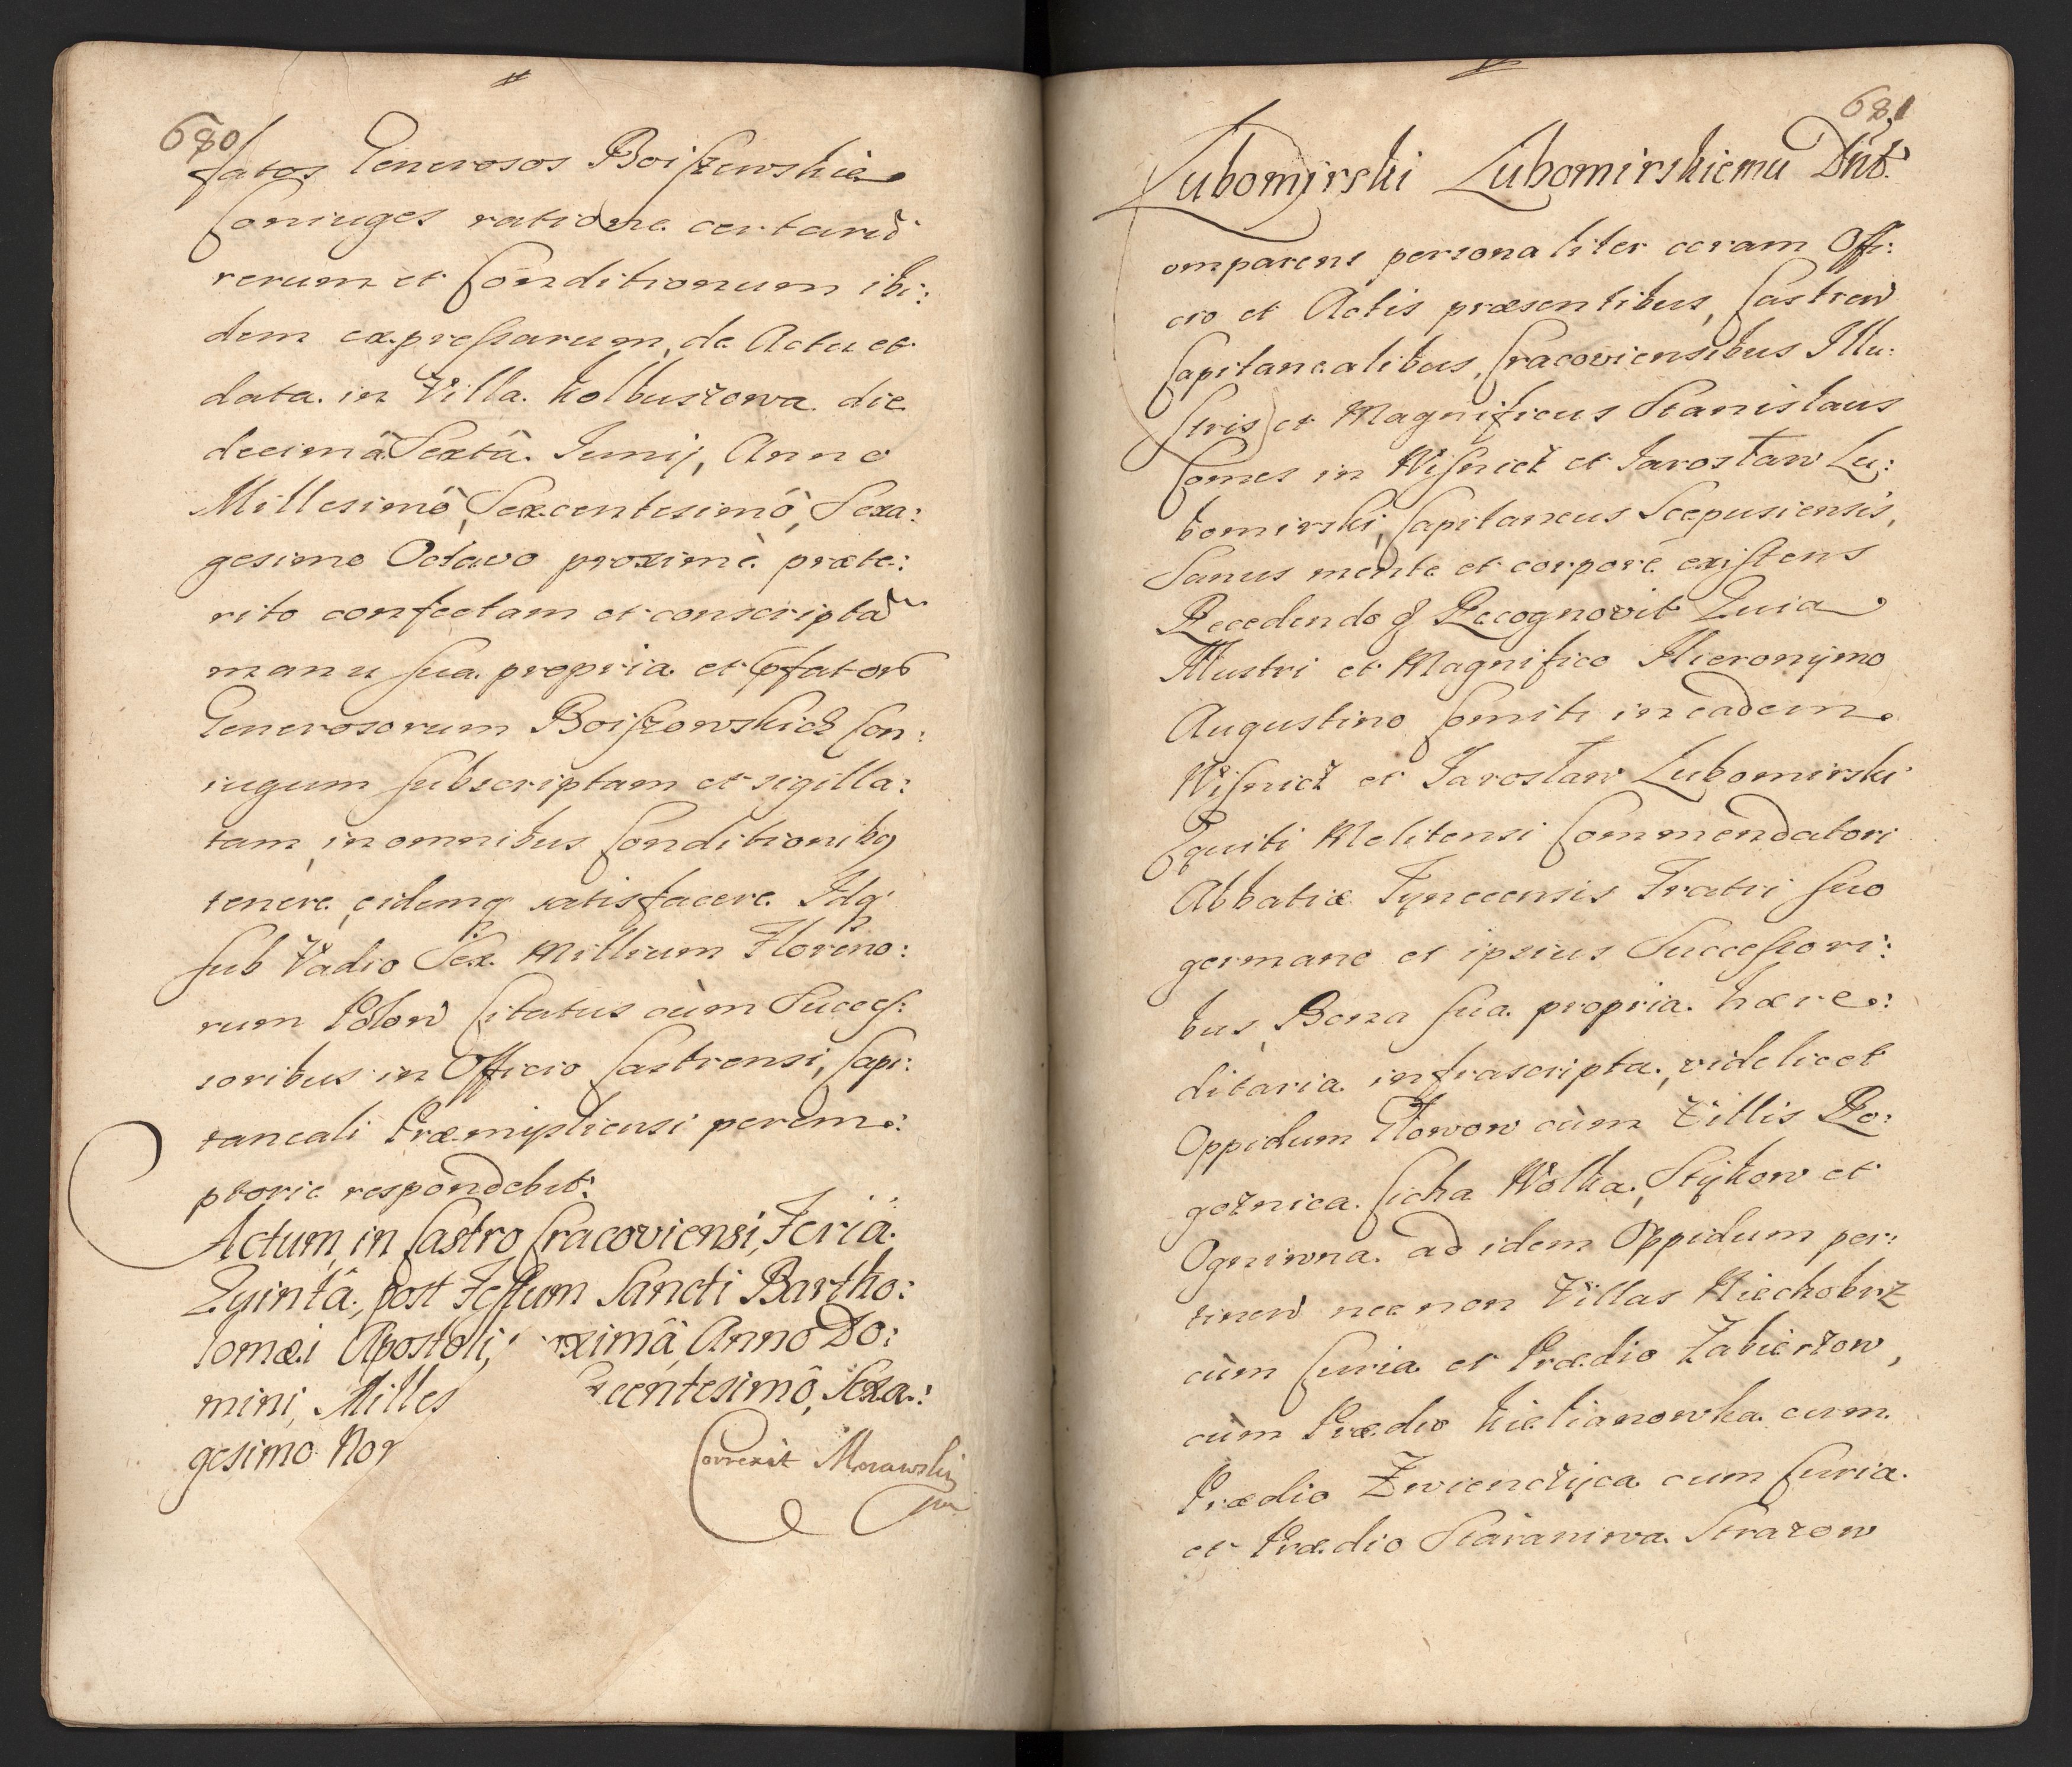 680
fatos Generosos Boiszewskie
Coniuges ratione certarū
rerum et Conditionum ibi:
dem expressarum, de Actu et
data in Villa Kolbuszowa die
decimâ Sextâ Iunij, Anno
Millesimô, Sexcentesimô, Sexa:
gesimo Octavo proximè præte:
rito confectam et conscriptā
manu sua propria et
Generosorum Boiszowskich Con:
iugum subscriptam et sigilla:
tam, in omnibus Conditionibq
tenere, eidemq satisfacere Idq
sub Vadio Sex Millium Floreno:
rum Polon Citatus cùm Succes:
soribus in Officio Castrensi, Capi:
taneali Præmisliensi perem:
ptorie respondebit:
Actum, in Castro Cracoviensi, Feriâ
Quintâ, post Festum Sancti Bartho:
lomæi Apostoli, ximâ Anno Do:
mini, Milles centesimô, Sexa:
gesimo Non
Correxit Morawski
681
Lubomirski Lubomirskiemu Dnt.
omparens personaliter coram Offi:
cio et Actis præsentibus, Castren
Capitanealibus, Cracoviensibus Illu:
stris et Magnificus Stanislaus
Comes in Wisnicz et Iarosław Lu:
bomirski, Capitaneus Scepusiensis,
Sanus mente et corpore existens
Recedendo & Recognovit Quia
Illustri et Magnifico Hieronymo
Augustino Comiti in eadem
Wisnicz et Iarosław Lubomirski
Equiti Melitensi Commendatori
Abbatiæ Tynecensis Fratri suo
germano et ipsius Successori:
bus, Bona sua propria hære:
ditaria infrascripta, videlicet
Oppidum Głowow cùm Villis Ro:
goznica Cicha Wolka, Stykow et
Ogniwna ad idem Oppidum per:
tinen nec non Villas Miechobrz
cùm Curia et Prædio Zabierzow,
cùm Prædio Kielianowka cum
Prædio Zwienczyca cum Curia
et Prædio Staraniwa Strazow